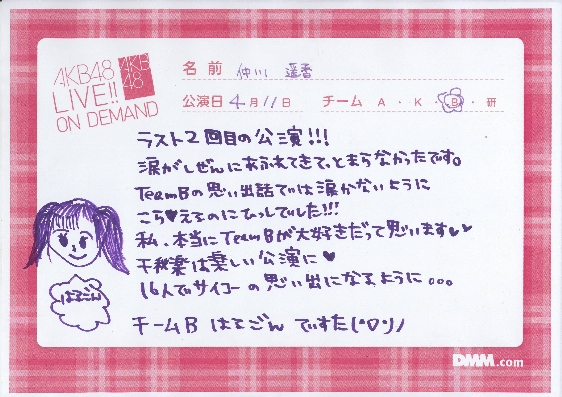 AKB48
LIVE!!
ON DEMAND
AKB
48
名前 仲川 遥香
公演日 4月11日 チーム A・K・B・研
ラスト2回目の公演!!!
涙がしぜんにあふれてきて、とまらなかったです。
TeamBの思い出話では涙がないように
こら♥えるのにひっしでした!!!
私、本当にTeamBが大好きだって思います♥♥
千秋楽は楽しい公演に♥
16人でサイコーの思い出になるように。。。
はるごん
チームB はるごん ですた(^▽ソ)ノ
DMM.com